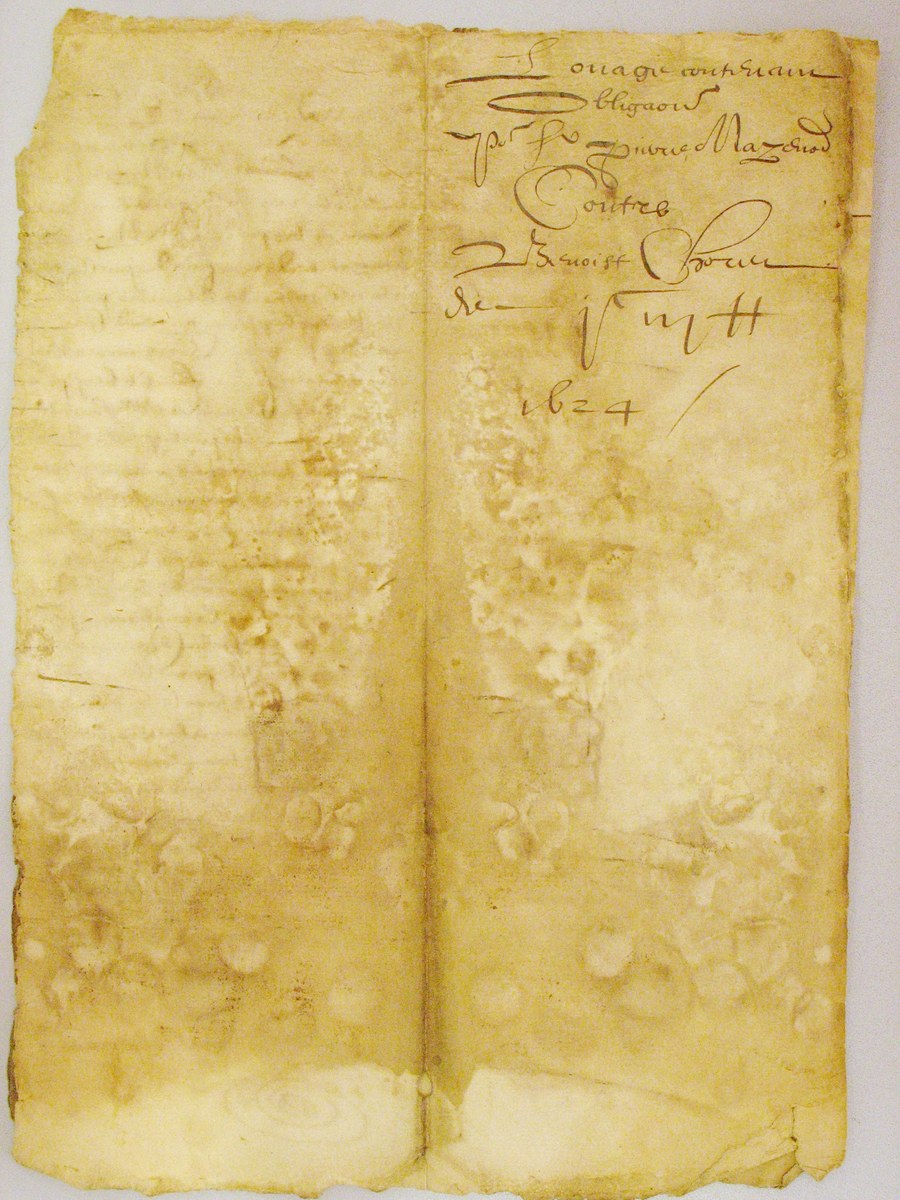 Louage contenant
Obligaon
Por Sr pierre Mazenod
Contre
Benoist
de
1624